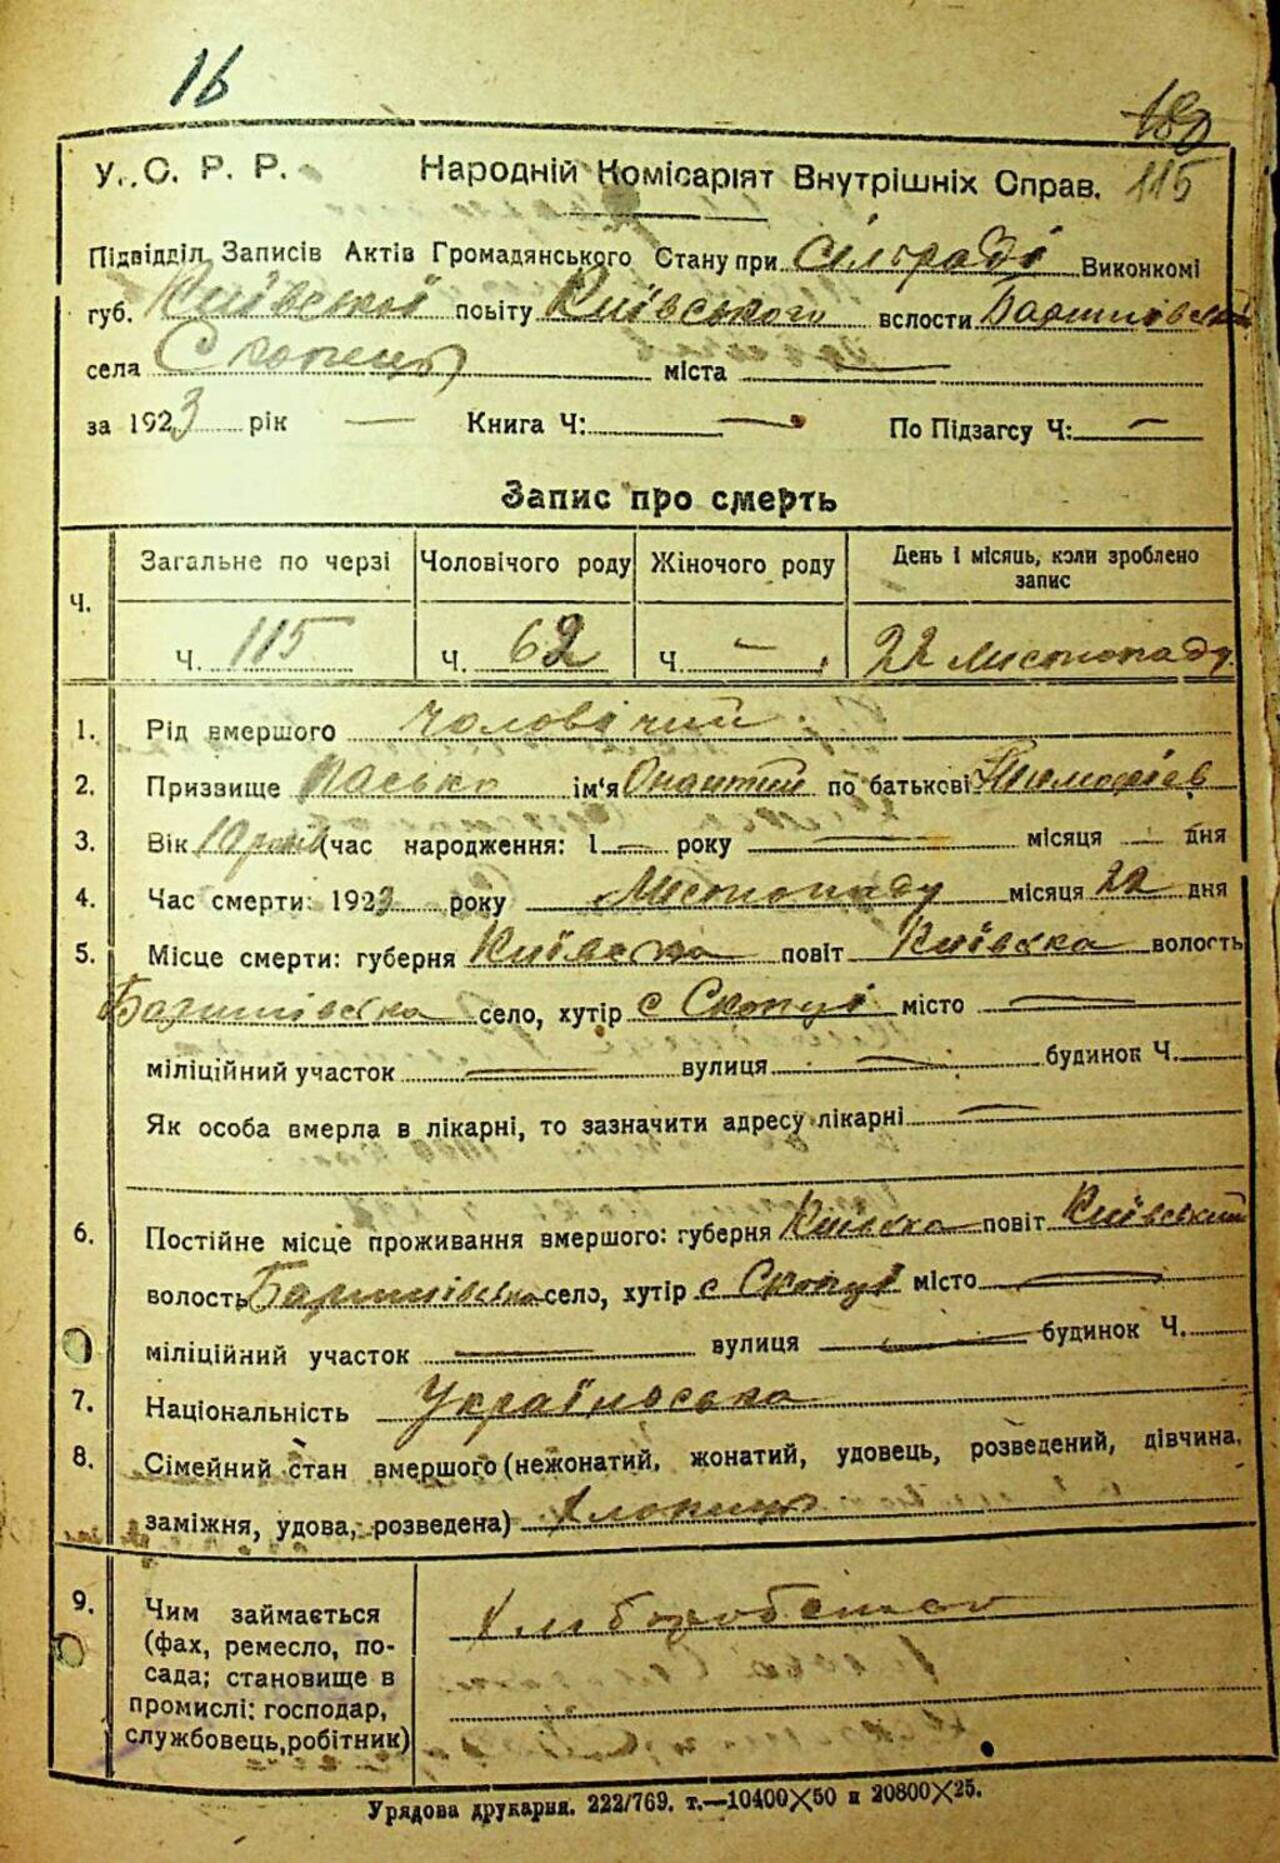 16
180
115
У.С.Р.Р. Народній Комісаріят Внутрішніх Справ.
Підвідділ Записів Актів Громадянського Стану при сільраді Виконкомі
губ. Київської повіту Київського волости Баришівської
села Скопець міста —
за 1923 рік — Книга Ч: — По Підзагсу Ч: —
Запис про смерть
Ч. Загальне по черзі Чоловічого роду Жіночого роду День і місяць, коли зроблено запис
Ч. 115 Ч. 62 Ч. — 22 Листопаду
1. Рід вмершого чоловічий
2. Призвище Пасько ім'я по батькові Тимофіев
3. Вік 10 років (час народження: 1 — року — місяця — дня
4. Час смерти: 1923 року Листопаду місяця 22 дня
5. Місце смерти: губерня Київська повіт Київська волость
Баришівська село, хутір с Скопці місто —
міліційний участок — вулиця — будинок Ч. —
Як особа вмерла в лікарні, то зазначити адресу лікарні —
6. Постійне місце проживання вмершого: губерня Київска повіт Київський
волость Баришівська село, хутір с Скопці місто —
міліційний участок — вулиця — будинок Ч.
7. Національність Українська
8. Сімейний стан вмершого (нежонатий, жонатий, удовець, розведений, дівчина,
заміжня, удова, розведена) Хлопець
9. Чим займається
(фах, ремесло, по-
сада; становище в
промислі: господар,
службовець, робітник)
Хліборобство
Урядова друкарня. 222/769. т.—10400×50 и 20800×25.